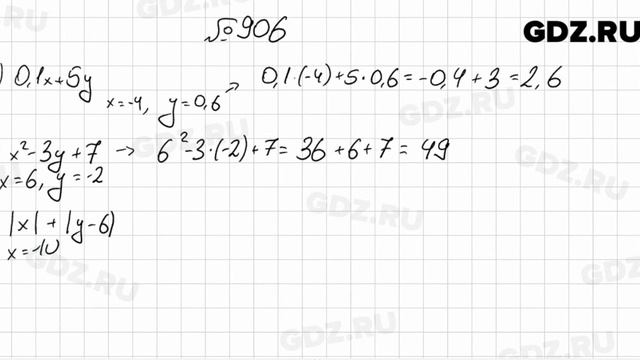 №906
GDZ.RU
) 0,1x+5y
x=-4, y=0,6 → 0,1·(-4)+5·0,6=-0,4+3=2,6
x²-3y+7 → 6²-3·(-2)+7=36+6+7=49
x=6, y=-2
|x|+|y-6|
x=-10
GDZ.RU
GDZ.RU
GDZ.RU
GDZ.RU
GDZ.RU
GDZ.RU
GDZ.RU
GDZ.RU